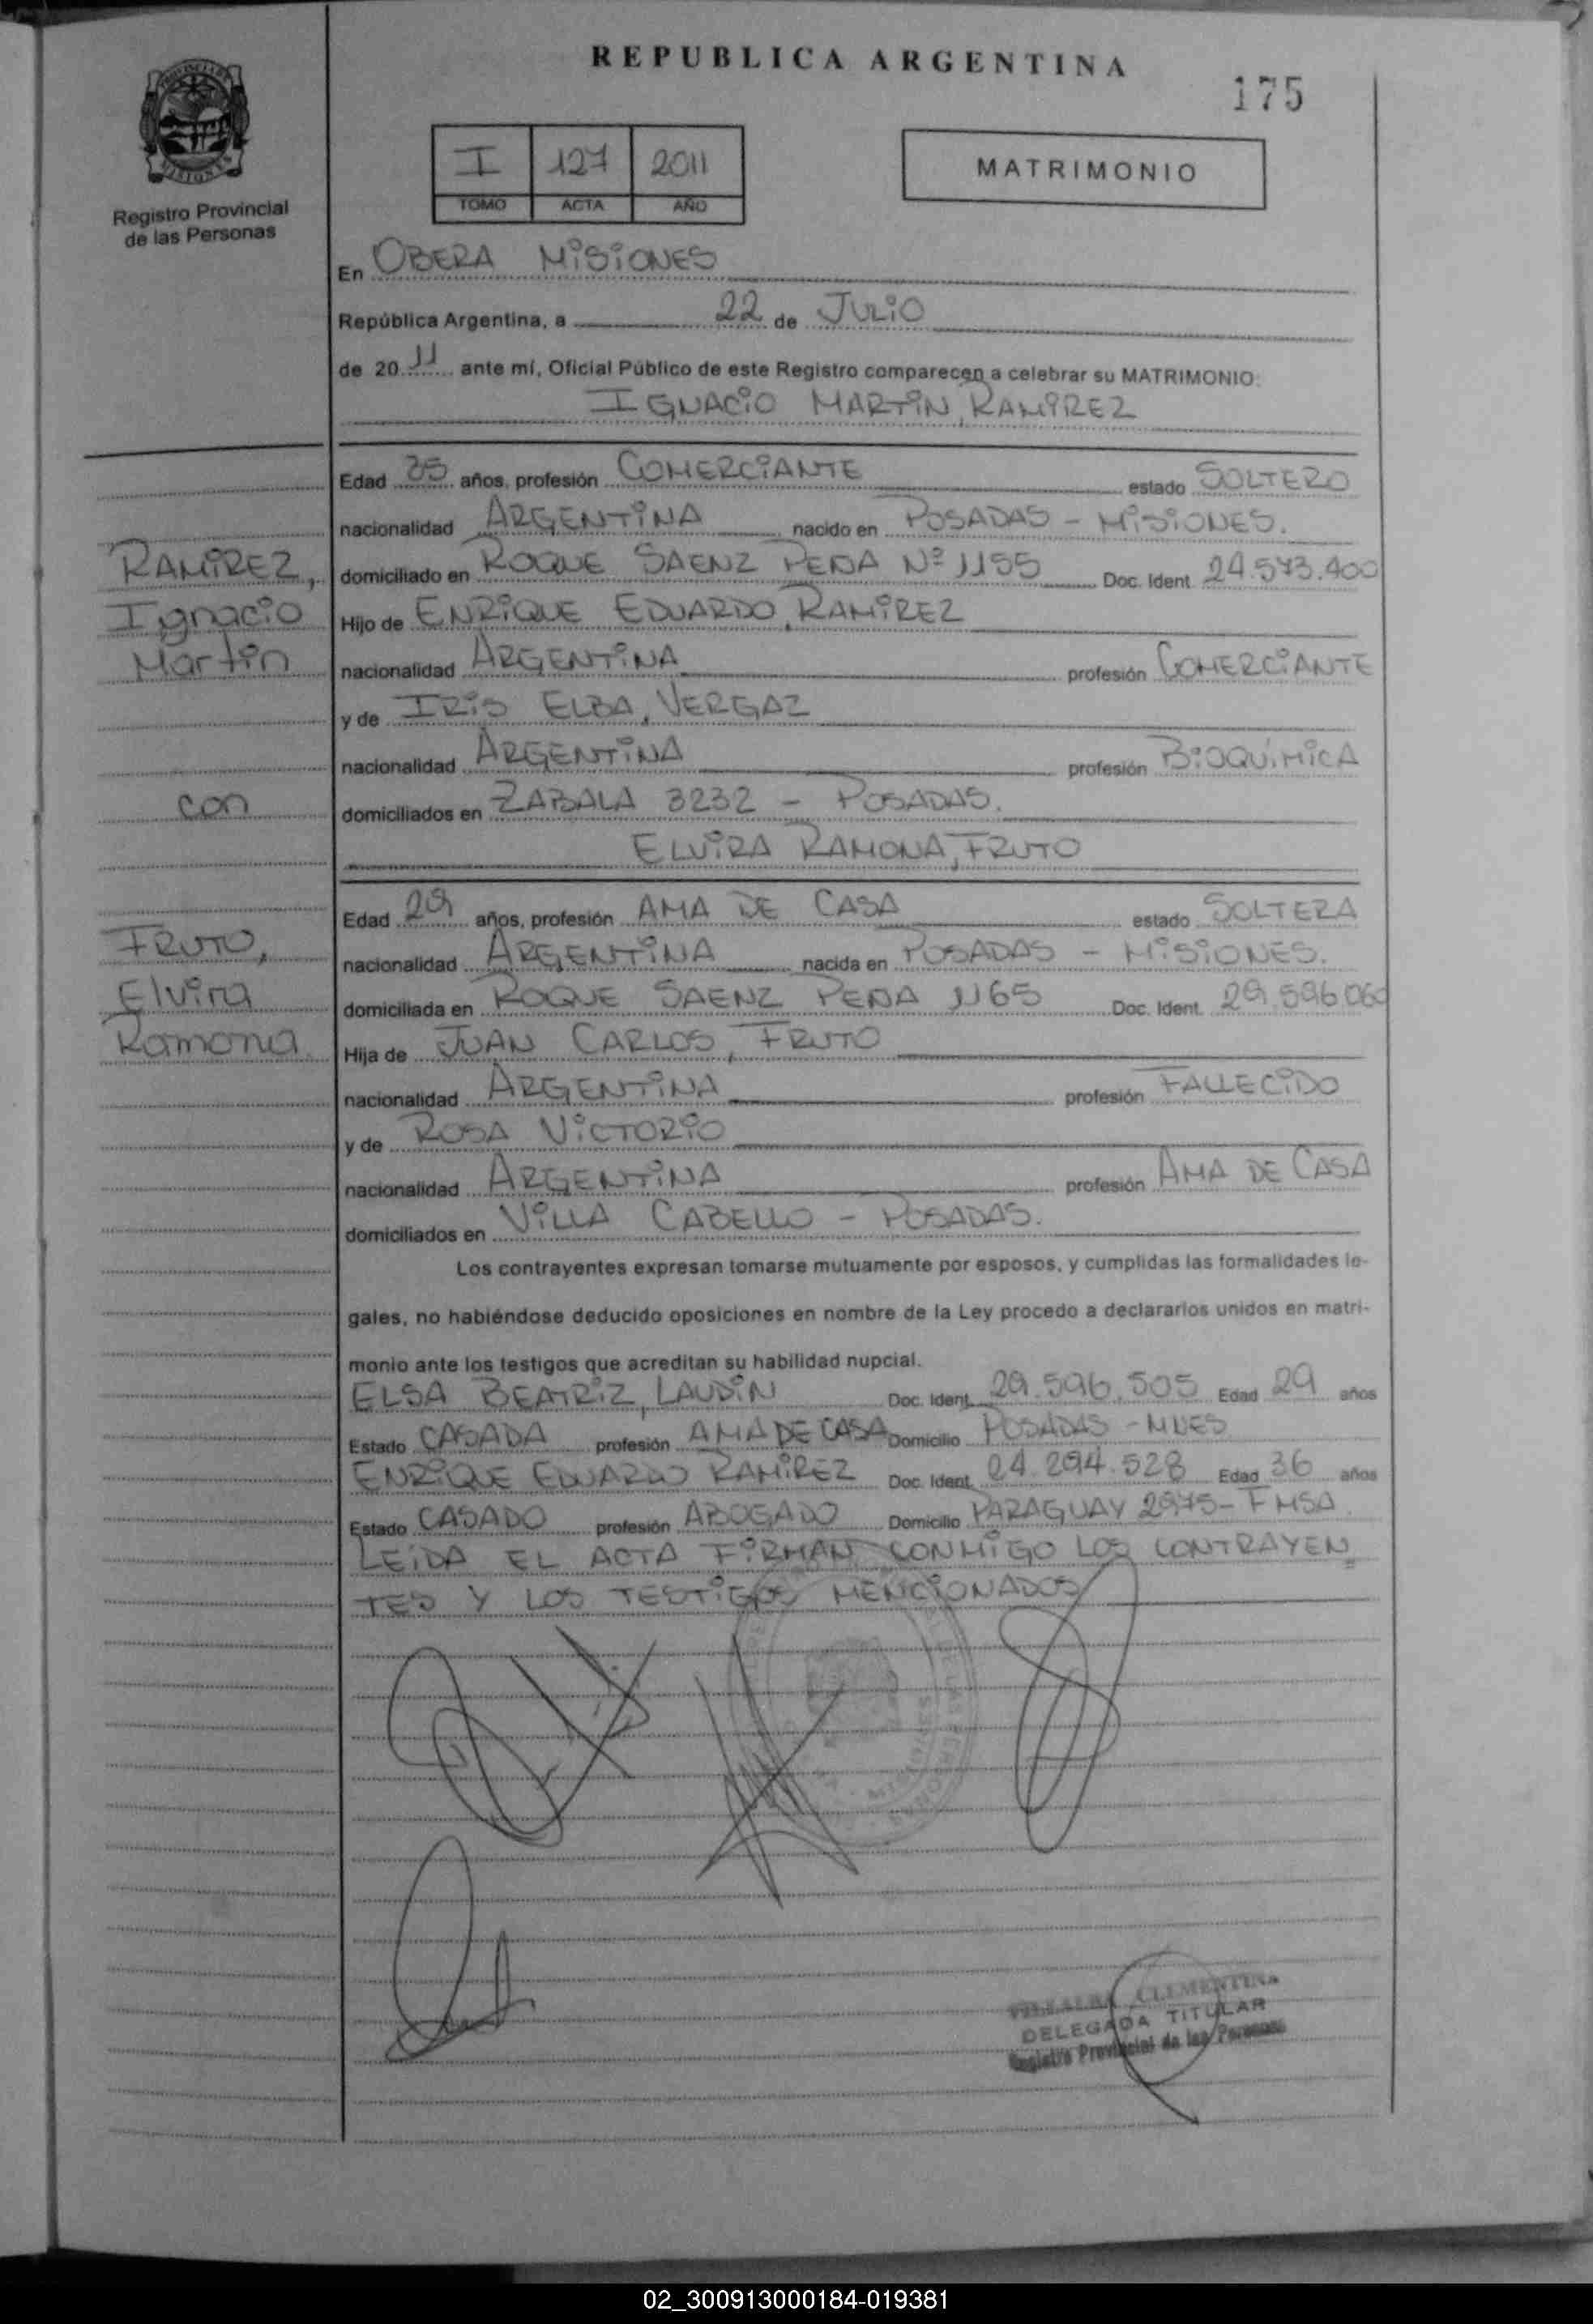 REPUBLICA ARGENTINA
175
PROVINCIA DE
MISIONES
Registro Provincial
de las Personas
I 127 2011
TOMO ACTA AÑO
MATRIMONIO
En OBERA MISIONES
República Argentina, a 22 de JULIO
de 2011 ante mí, Oficial Público de este Registro comparecen a celebrar su MATRIMONIO:
IGNACIO MARTIN, RAMIREZ
Edad 35 años, profesión COMERCIANTE estado SOLTERO
nacionalidad ARGENTINA nacido en POSADAS - MISIONES.
RAMIREZ, domiciliado en ROQUE SAENZ PEÑA Nº 1155 Doc. Ident. 24.573.400
Ignacio Hijo de ENRIQUE EDUARDO, RAMIREZ
Martin nacionalidad ARGENTINA profesión COMERCIANTE
y de IRIS ELBA, VERGAZ
nacionalidad ARGENTINA profesión BIOQUÍMICA
con domiciliados en ZABALA 3232 - POSADAS.
ELVIRA RAMONA, FRUTO
Edad 29 años, profesión AMA DE CASA estado SOLTERA
FRUTO, nacionalidad ARGENTINA nacida en POSADAS - MISIONES.
Elvira domiciliada en ROQUE SAENZ PEÑA 1165 Doc. Ident. 29.596.060
Ramona Hija de JUAN CARLOS, FRUTO
nacionalidad ARGENTINA profesión FALLECIDO
y de ROSA VICTORIO
nacionalidad ARGENTINA profesión AMA DE CASA
domiciliados en VILLA CABELLO - POSADAS.
Los contrayentes expresan tomarse mutuamente por esposos, y cumplidas las formalidades le-
gales, no habiéndose deducido oposiciones en nombre de la Ley procedo a declararlos unidos en matri-
monio ante los testigos que acreditan su habilidad nupcial.
ELSA BEATRIZ, LAUDIN Doc. Ident. 29.596.505 Edad 29 años
Estado CASADA profesión AMA DE CASA Domicilio POSADAS - MNES
ENRIQUE EDUARDO RAMIREZ Doc. Ident. 24.294.528 Edad 36 años
Estado CASADO profesión ABOGADO Domicilio PARAGUAY 2975 - FMSA
LEIDA EL ACTA FIRMAN CONMIGO LOS CONTRAYEN
TES Y LOS TESTIGOS MENCIONADOS
CLEMENTINA
DELEGADA TITULAR
Registro Provincial de las Personas
02_300913000184-019381